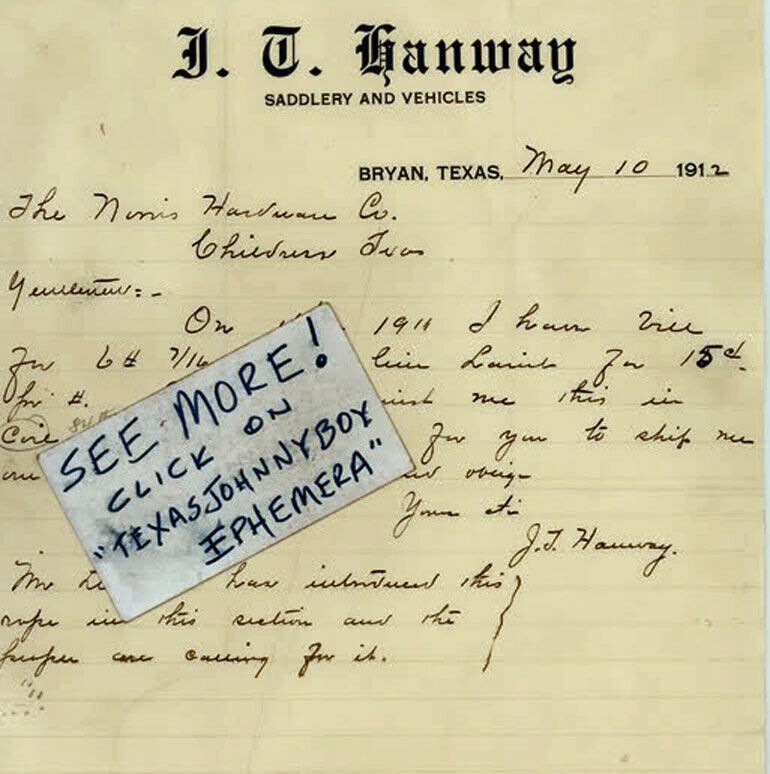 J. T. Hanway
SADDLERY AND VEHICLES
BRYAN, TEXAS, May 10 1912
The Norris Hardware Co.
Childress Texas
Gentlemen:-
On 1911 I have
for 6# 7/16 for 15¢
for #. me this in
Coil for you to ship me
one and oblige
Yours
J.T. Hanway.
Mr have introduced this
rope in this section and the
people are calling for it.
SEE MORE!
CLICK ON
"TEXASJOHNNYBOY
EPHEMERA"